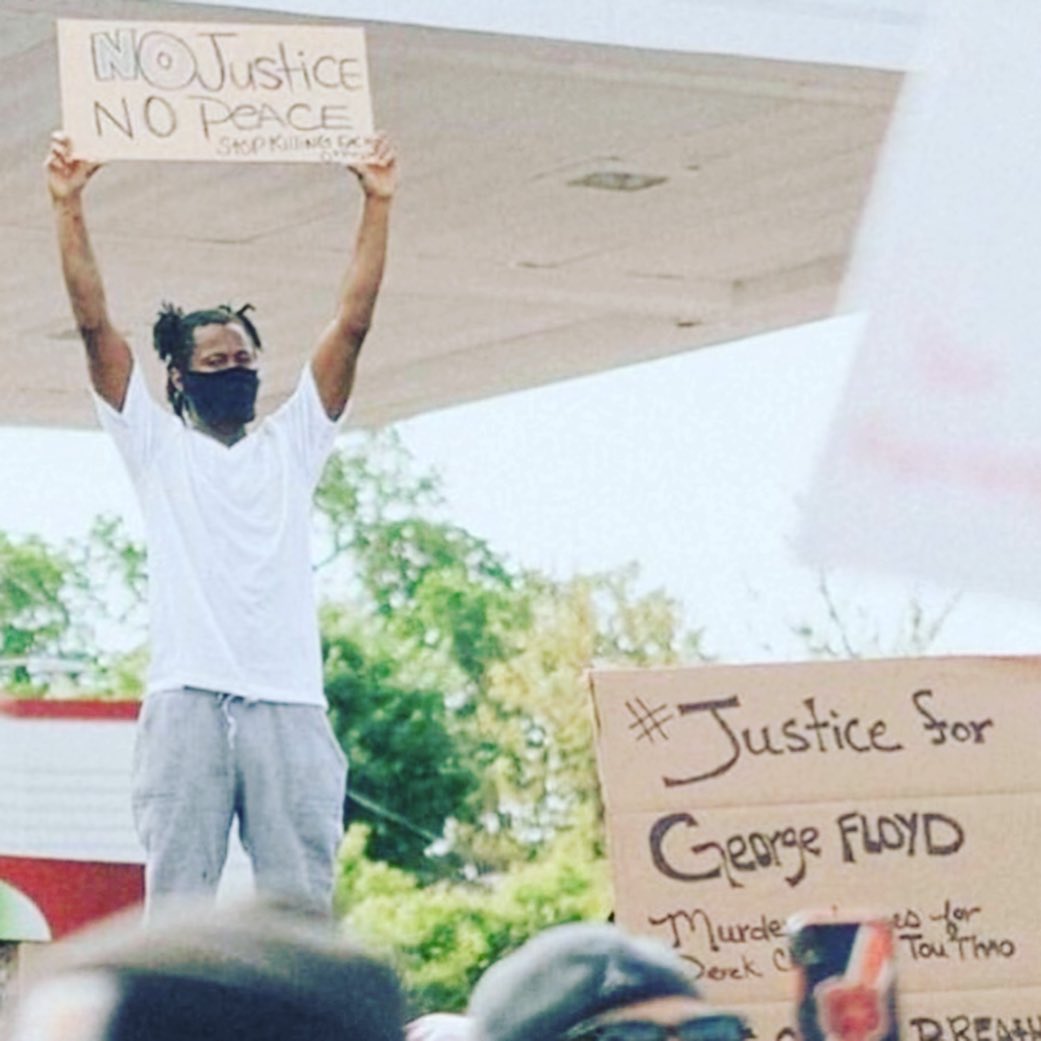 NO Justice
NO PeACE
STOP KILLING
#Justice for
George FLOYD
for
Derek Tou Thao
BREATH